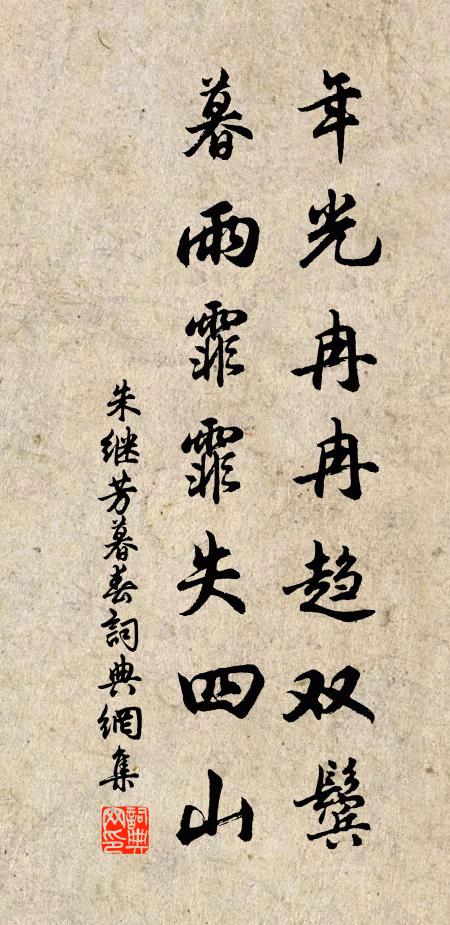 年光冉冉趋双鬓
暮雨霏霏失四山
朱继芳暮春詞典網集
詞典网印